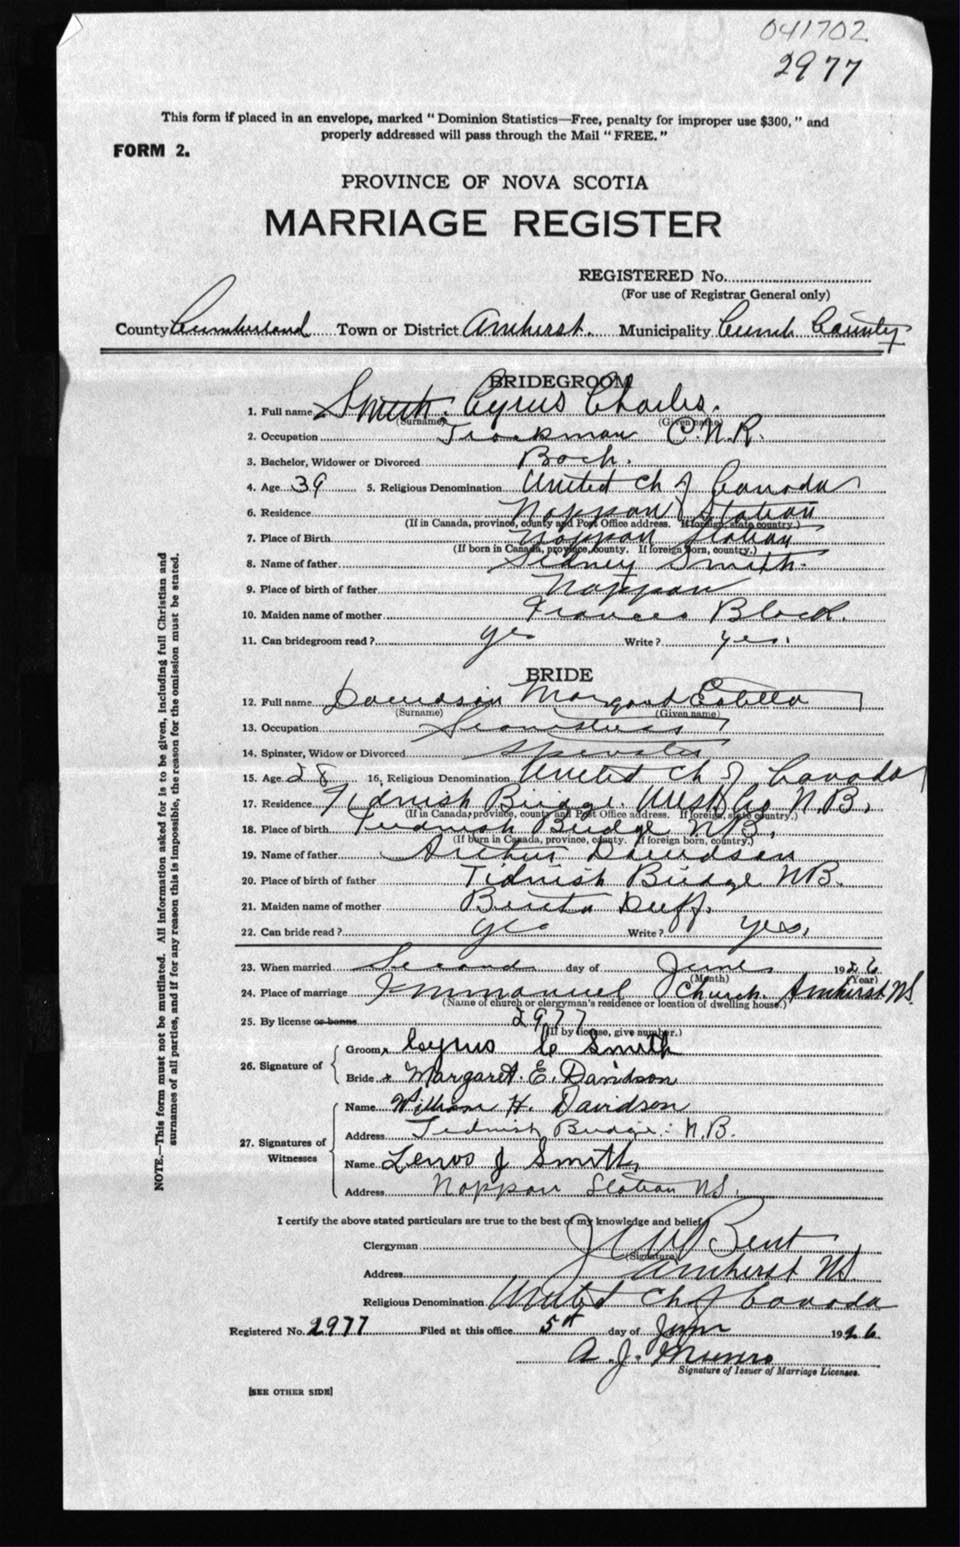 041702
2977
This form if placed in an envelope, marked "Dominion Statistics—Free, penalty for improper use $300," and
properly addressed will pass through the Mail "FREE."
FORM 2.
PROVINCE OF NOVA SCOTIA
MARRIAGE REGISTER
REGISTERED No.
(For use of Registrar General only)
County Cumberland Town or District Amherst. Municipality Cumb. County
BRIDEGROOM
1. Full name Smith. Cyrus Charles.
(Surname) (Given name)
2. Occupation Trackman C.N.R.
3. Bachelor, Widower or Divorced Bach.
4. Age 39 5. Religious Denomination United Ch of Canada
6. Residence Nappan Station
(If in Canada, province, county and Post Office address. If foreign, state country.)
7. Place of Birth Nappan Station
(If born in Canada, province, county. If foreign born, country.)
8. Name of father Sidney Smith.
9. Place of birth of father Nappan
10. Maiden name of mother Frances Black.
11. Can bridegroom read? yes Write? yes.
BRIDE
12. Full name Davidson Margaret Estella
(Surname) (Given name)
13. Occupation
14. Spinster, Widow or Divorced Spinster
15. Age 28 16. Religious Denomination United Ch of Canada
17. Residence Tidnish Bridge. West Co N.B.
(If in Canada, province, county and Post Office address. If foreign, state country.)
18. Place of birth Tidnish Bridge N.B.
(If born in Canada, province, county. If foreign born, country.)
19. Name of father Arthur Davidson
20. Place of birth of father Tidnish Bridge N.B.
21. Maiden name of mother Duff.
22. Can bride read? yes Write? yes,
23. When married Second day of June 1926
(Month) (Year)
24. Place of marriage Immanuel Church. Amherst NS.
(Name of church or clergyman's residence or location of dwelling house.)
25. By license or banns 2977
(If by license, give number.)
26. Signature of
Groom x Cyrus C Smith
Bride x Margaret. E. Davidson
27. Signatures of Witnesses
Name William H. Davidson
Address Tidnish Bridge. N.B.
Name J Smith,
Address Nappan Station NS.
I certify the above stated particulars are true to the best of my knowledge and belief,
Clergyman Bent
(Signature)
Address Amherst NS.
Religious Denomination United Ch of Canada
Registered No. 2977 Filed at this office 5th day of June 1926.
A. J. Munro
Signature of Issuer of Marriage Licenses.
[SEE OTHER SIDE]
NOTE.—This form must not be mutilated. All information asked for is to be given, including full Christian and
surnames of all parties, and if for any reason this is impossible, the reason for the omission must be stated.